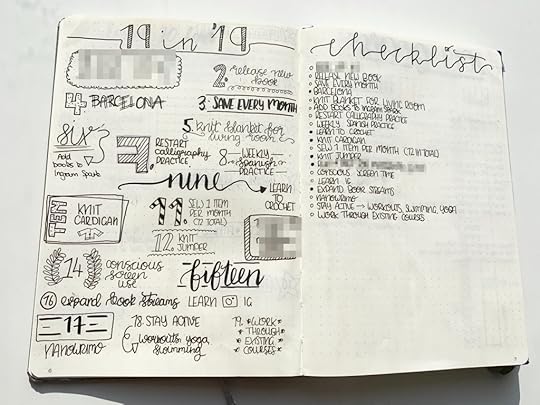 19 in '19
2. release new
book
4 BARCELONA
3. SAVE EVERY MONTH
5. knit blanket for
living room
SIX
Add
books to
Ingram Spark
7. RESTART
calligraphy
PRACTICE
8 - WEEKLY
Spanish
PRACTICE
nine
LEARN
TO
CROCHET
TEN
KNIT
CARDIGAN
11. SEW 1 ITEM
PER MONTH
(12 TOTAL)
12. KNIT
JUMPER
14 conscious
screen
use
fifteen
LEARN IG
16 expand book streams
17
NANOWRIMO
18. STAY ACTIVE
workouts, yoga,
swimming
19. *WORK*
*THROUGH*
*EXISTING*
*COURSES*
6
checklist
RELEASE NEW BOOK
SAVE EVERY MONTH
BARCELONA
KNIT BLANKET FOR LIVING ROOM
ADD BOOKS TO INGRAM SPARK
RESTART CALLIGRAPHY PRACTICE
WEEKLY SPANISH PRACTICE
LEARN TO CROCHET
KNIT CARDIGAN
SEW 1 ITEM PER MONTH (12 IN TOTAL)
KNIT JUMPER
CONSCIOUS SCREEN TIME
LEARN IG
EXPAND BOOK STREAMS
NANOWRIMO
STAY ACTIVE → WORKOUTS, SWIMMING, YOGA
WORK THROUGH EXISTING COURSES
7